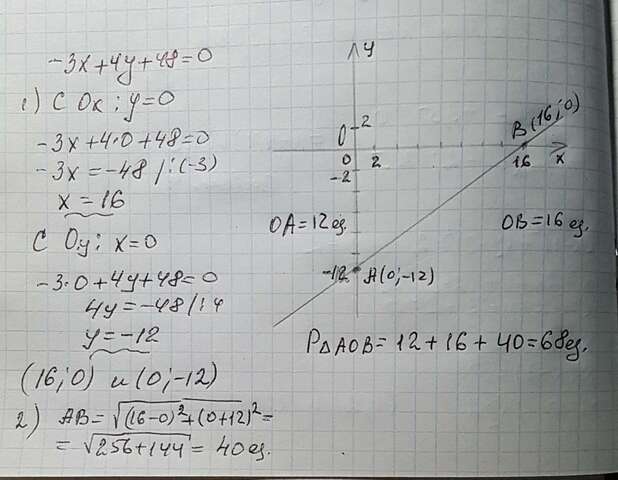 -3x+4y+48=0
1) С Ox: y=0
-3x+4·0+48=0
-3x=-48 /:(-3)
x=16
С Oy: x=0
-3·0+4y+48=0
4y=-48 /:4
y=-12
(16;0) и (0;-12)
2) AB=√(16-0)²+(0+12)²=
=√256+144=40ед.
y
0 2
B(16;0)
0 2 16 x
-2
OA=12ед. OB=16ед.
-12 A(0;-12)
P△AOB=12+16+40=68ед.